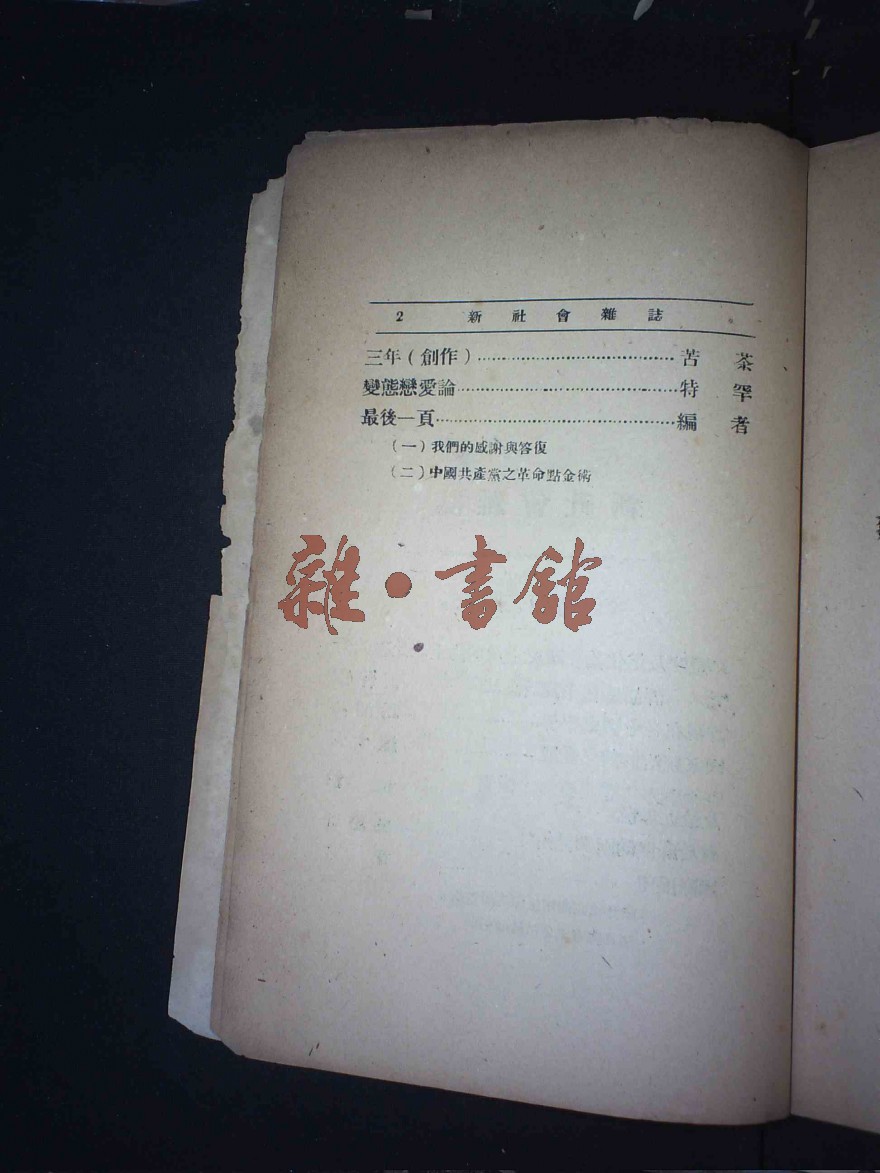 2 新社會雜誌
三年(創作)……………………苦茶
變態戀愛論……………………特罕
最後一頁……………………編者
(一)我們的感謝與答復
(二)中國共產黨之革命點金術
雜·書館